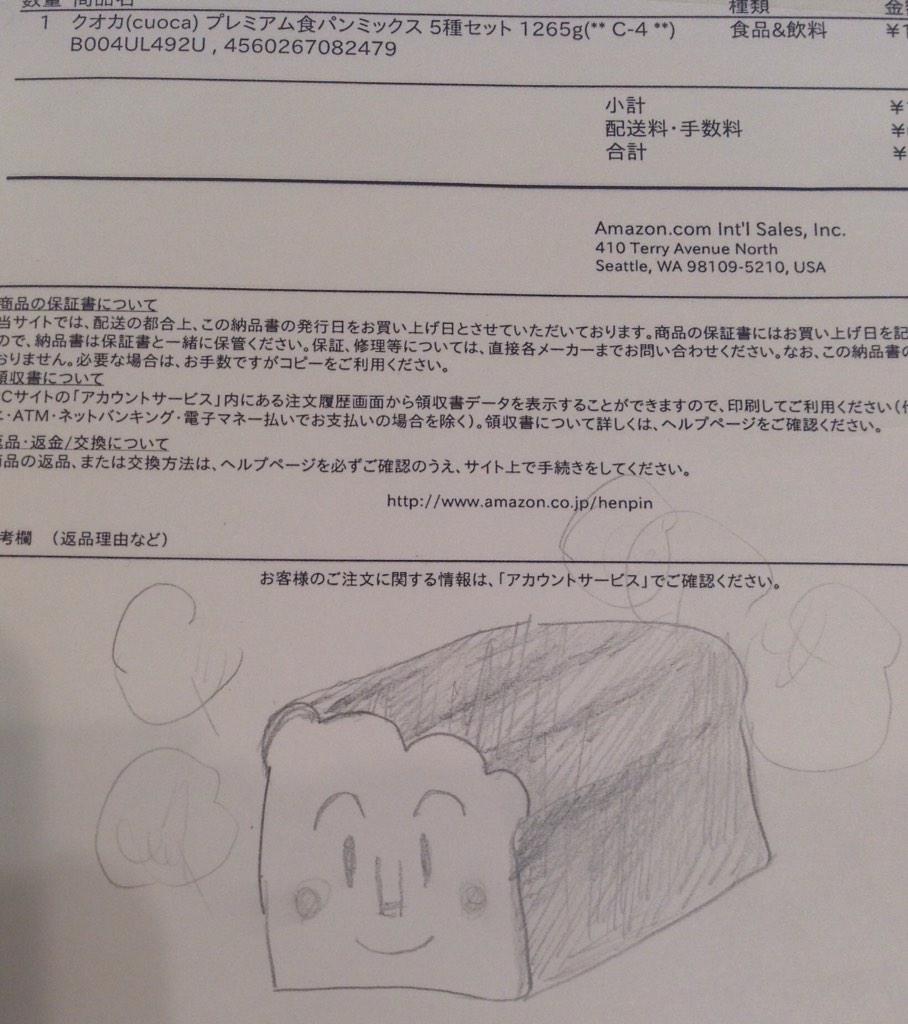 数量 商品名 種類
1 クオカ(cuoca) プレミアム食パンミックス 5種セット 1265g(** C-4 **) 食品&飲料 ¥1
B004UL492U , 4560267082479
小計 ¥
配送料・手数料 ¥
合計 ¥
Amazon.com Int'l Sales, Inc.
410 Terry Avenue North
Seattle, WA 98109-5210, USA
商品の保証書について
当サイトでは、配送の都合上、この納品書の発行日をお買い上げ日とさせていただいております。商品の保証書にはお買い上げ日を記
ので、納品書は保証書と一緒に保管ください。保証、修理等については、直接各メーカーまでお問い合わせください。なお、この納品書の
おりません。必要な場合は、お手数ですがコピーをご利用ください。
領収書について
PCサイトの「アカウントサービス」内にある注文履歴画面から領収書データを表示することができますので、印刷してご利用ください(
・ATM・ネットバンキング・電子マネー払いでお支払いの場合を除く)。領収書について詳しくは、ヘルプページをご確認ください。
返品・返金/交換について
商品の返品、または交換方法は、ヘルプページを必ずご確認のうえ、サイト上で手続きをしてください。
http://www.amazon.co.jp/henpin
考欄 (返品理由など)
お客様のご注文に関する情報は、「アカウントサービス」でご確認ください。